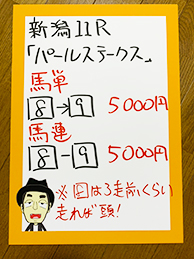 新潟11R
「パールステークス」
馬単
8→9 5000円
馬連
8-9 5000円
※8は3走前くらい
走れば頭!